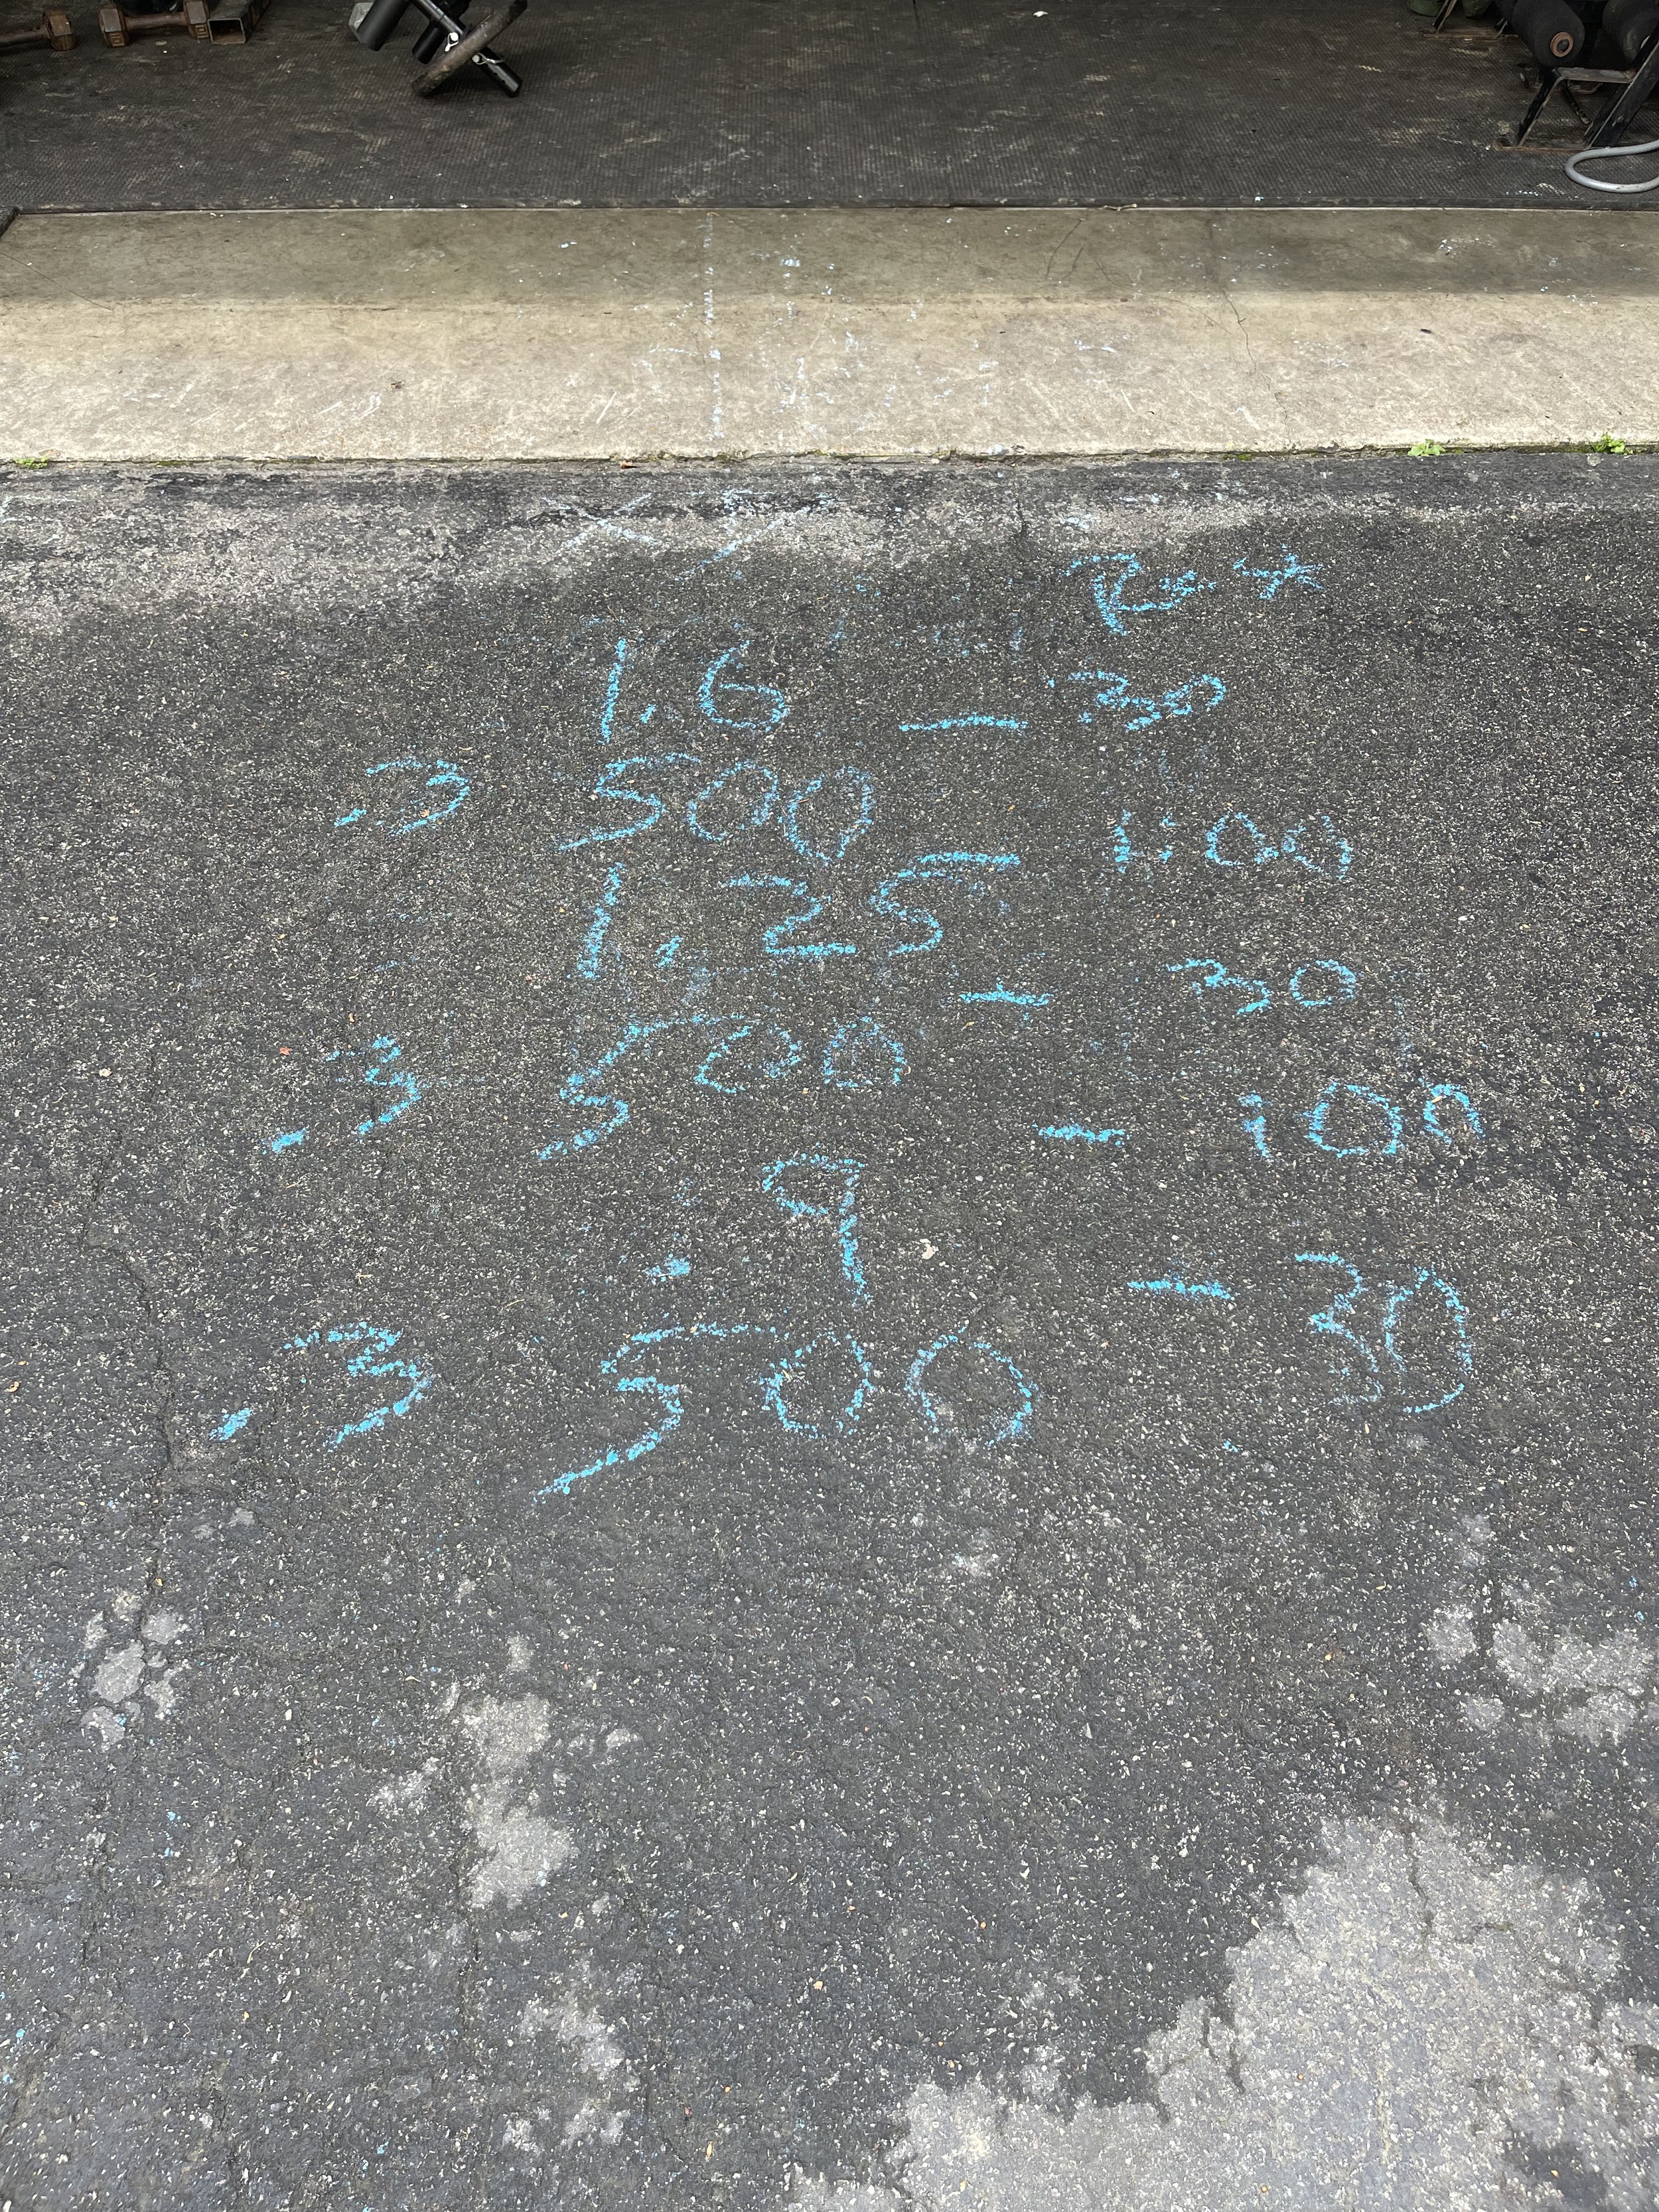 Rest
1.6 - 30
.3 500 1:00
1.25 - 30
.3 500 - 100
.9 - 30
.3 500